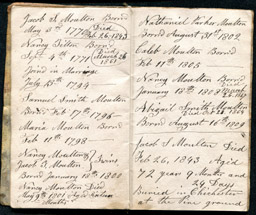 Jacob S Moulton Born
May 5th 1770 Died
Feb 26. 1843
Nancy Tilton Born
Sept 4th 1771 Died
March 26
Joind in Marriage
July 15th 1794
Samuel Smith Moulton
Born Feb 17th 1796
Maria Moulton Born
Feb 11th 1798
Nancy Moulton &
Jacob S. Moulton Twins
Born January 18th 1800
Nancy Moulton Died
May 9th 1801 Aged
Months
Nathaniel Parker Moulton
Born August 31st 1802
Caleb Moulton Born
Feb 11th 1805
Nancy Moulton Born
January 18th 1808
Abigail Smith Moulton
Born August 16th 1809
Jacob S Moulton Died
Feb 26, 1843 Aged
72 year 9 Months and
24 Days
Buried in Chichester
at the pine ground